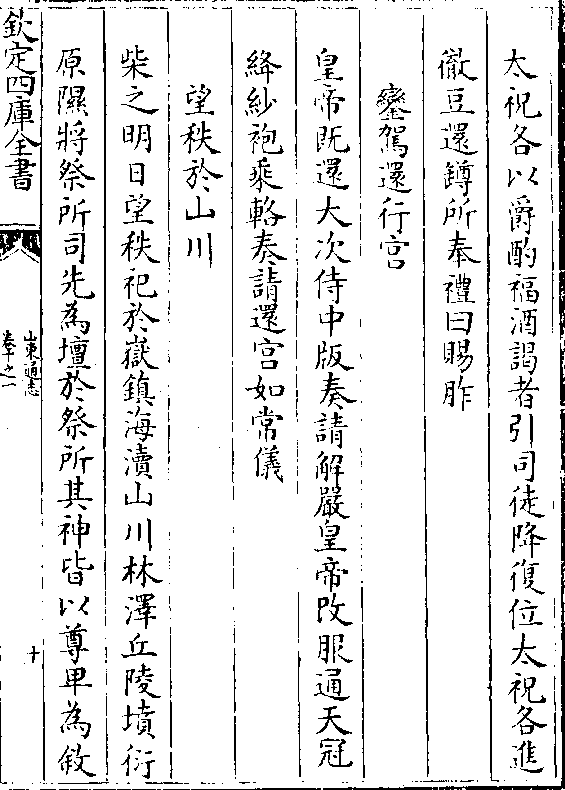 太祝各以爵酌福酒謁者引司徒降復位太祝各進
徹豆還罇所奉禮曰賜胙
鑾駕還行宫
皇帝既還大次侍中版奏請解嚴皇帝改服通天冠
絳紗袍乘輅奏請還宫如常儀
望秩於山川
柴之明日望秩祀於嶽鎮海瀆山川林澤丘陵墳衍
原隰將祭所司先為壇於祭所其神皆以尊卑為敘
欽定四庫全書
山東通志
卷十之一
十